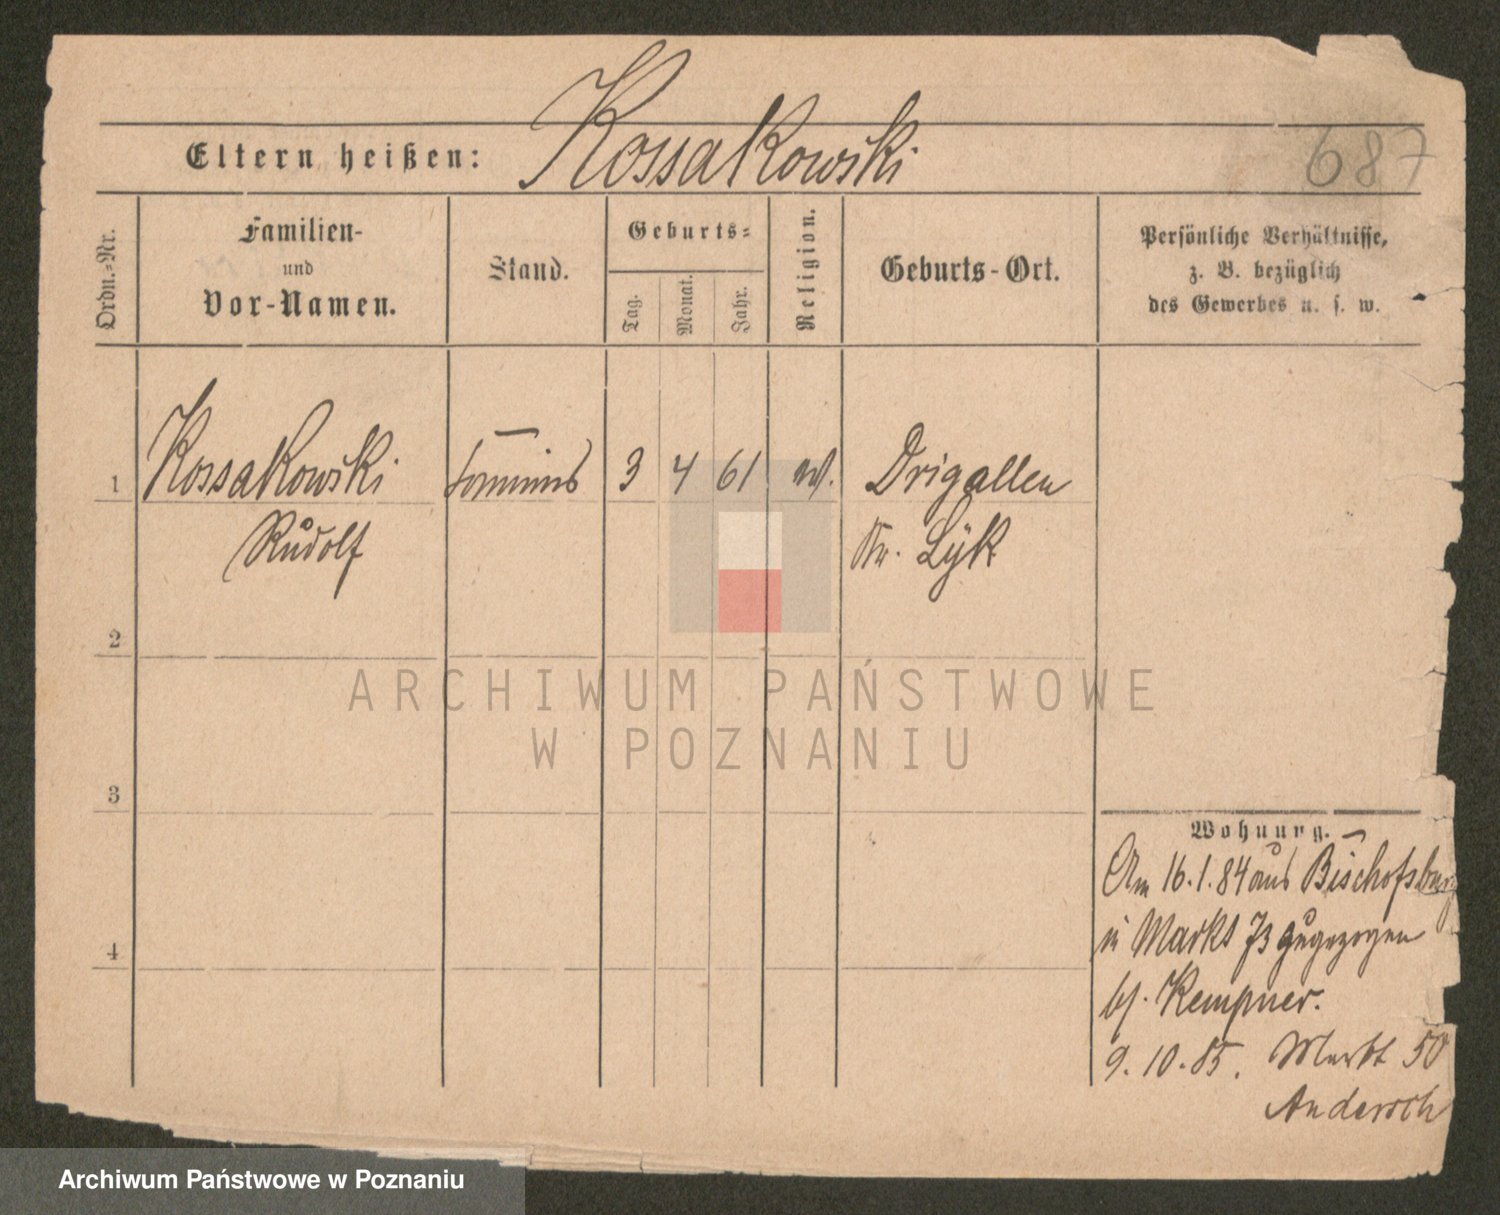 Kossakowski
Eltern heißen:
687
Ordn.-Nr.
Familien-
und
Vor-Namen.
Stand.
Geburts-
Tag.
Monat.
Jahr.
Religion.
Geburts-Ort.
Persönliche Verhältnisse,
z. B. bezüglich
des Gewerbes u. s. w.
1
Kossakowski
Rudolf
Commis
3
4
61
ev.
Drigallen
Kr. Lÿk
2
3
4
Wohnung.
Am 16.1.84 aus Bischofsburg
in Markt 73 zugezogen
bei Kempner.
9.10.85. Markt 50
Andersch
ARCHIWUM PAŃSTWOWE
W POZNANIU
Archiwum Państwowe w Poznaniu